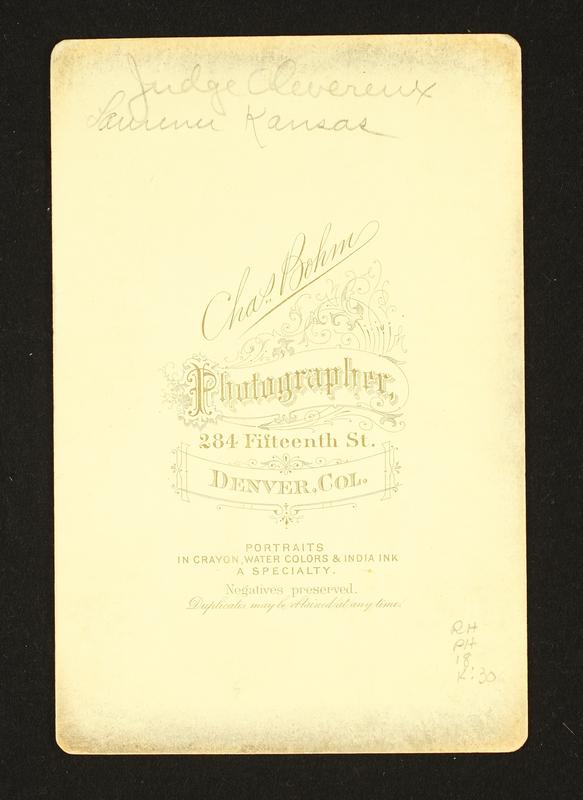 Judge Devereux
Lawrence Kansas
Chas. Bohm
Photographer,
284 Fifteenth St.
DENVER, COL.
PORTRAITS
IN CRAYON, WATER COLORS & INDIA INK
A SPECIALTY.
Negatives preserved.
Duplicates may be obtained at any time.
RH
PH
18
K:30